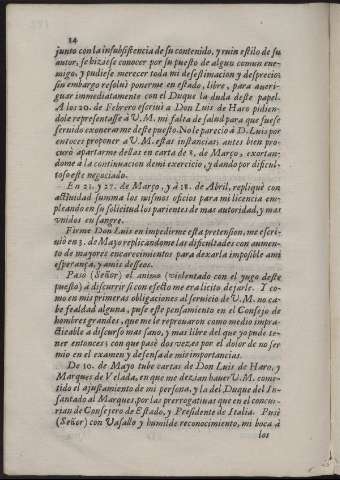 24
junto con la insubsistencia de su contenido, y ruin estilo de su
autor, se hiziese conocer por su puesto de algun comun ene-
migo, y pudiese merecer toda mi desestimacion y desprecio;
sin embargo resolui ponerme en estado, libre, para aueri-
guar immediatamente con el Duque la duda deste papel.
A los 20. de Febrero escriui à Don Luis de Haro pidien-
dole representasse à V.M. mi falta de salud para que fuese
seruido exonerarme deste puesto. No le parecio à D. Luis por
entonces proponer à V.M. estas instancias; antes bien pro-
curò apartarme dellas en carta de 8. de Março, exortan-
dome à la continuacion de mi exercicio, y dando por dificul-
toso este negociado.
En 21. y 27. de Março, y à 18. de Abril, repliquè con
actiuidad summa los mismos oficios para mi licencia em-
pleando en su solicitud los parientes de mas autoridad, y mas
vnidos en sangre.
Firme Don Luis en impedirme esta pretension, me escri-
uiò en 3. de Mayo replicandome las dificultades con aumen-
to de mayores encarecimientos para dexarla imposible a mi
esperança, y a mis desseos.
Pasò (Señor) el animo (violentado con el yugo deste
puesto) à discurrir si con efecto me era licito dejarle. Y co-
mo en mis primeras obligaciones al seruicio de V.M. no ca-
be fealdad alguna, puse este pensamiento en el Consejo de
hombres grandes, que me le reprouaron como medio impra-
cticable a discurso mas sano, y mas libre del que yo pude te-
ner entonces; con que pasè dos vezes por el dolor de no ser
mio en el examen y defensa de mis importancias.
De 10. de Mayo tube cartas de Don Luis de Haro, y
Marques de Velada, en que me dezian hauer V.M. come-
tido el ajustamiento de mi persona, y la del Duque del In-
fantado al Marques, por las prerrogatiuas que en el concu-
rian de Consejero de Estado, y Presidente de Italia. Puse
(Señor) con Vasallo y humilde reconocimiento, mi boca à
los